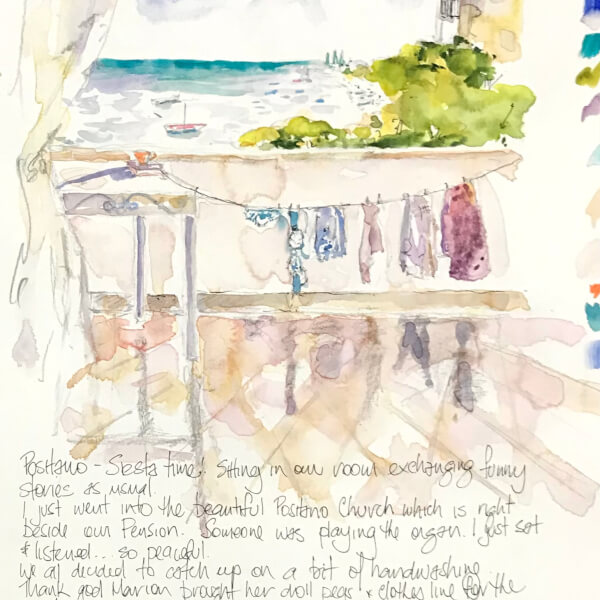 Positano - Siesta time! Sitting in our room exchanging funny
stories as usual.
I just went into the beautiful Positano Church which is right
beside our Pension. Someone was playing the organ. I just sat
& listened... so peaceful.
We all decided to catch up on a bit of handwashing
Thank god Marion brought her doll pegs & clothes line for the